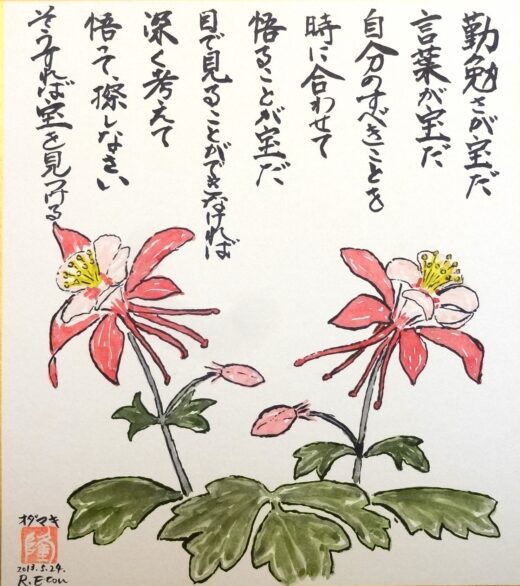 勤勉さが宝だ
言葉が宝だ
自分のすべきことを
時に合わせて
悟ることが宝だ
目で見ることができなければ
深く考えて
悟って、探しなさい
そうすれば宝を見つける
オダマキ
隆
2013.5.24.
R.Etou